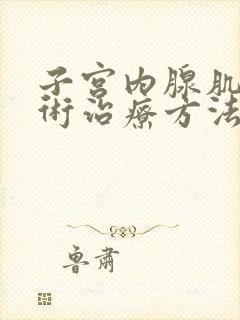 子宫内腺肌
術治療方法
魯肅